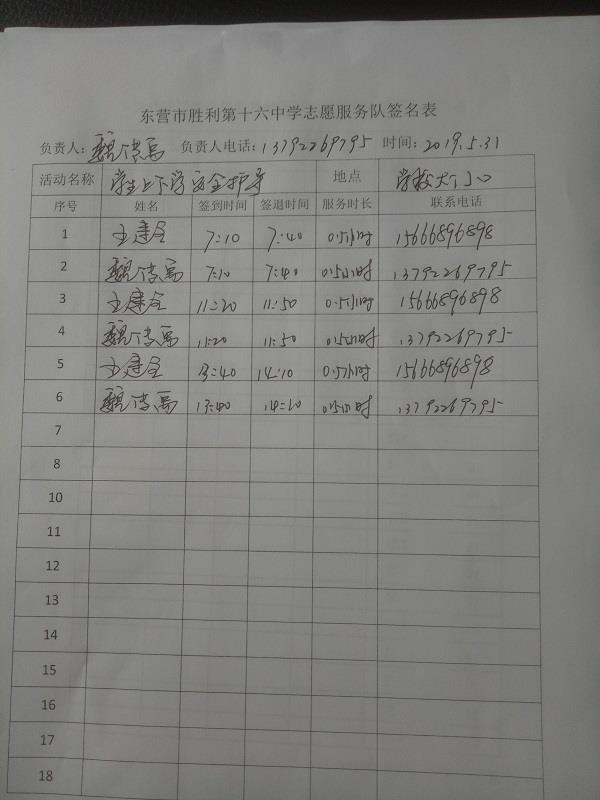 东营市胜利第十六中学志愿服务队签名表
负责人：魏传禹 负责人电话：13792269795 时间：2019.5.31
活动名称 学生上下学安全护导 地点 学校大门口
序号 姓名 签到时间 签退时间 服务时长 联系电话
1 王建全 7:10 7:40 0.5小时 15666896898
2 魏传禹 7:10 7:40 0.5小时 13792269795
3 王建全 11:20 11:50 0.5小时 15666896898
4 魏传禹 11:20 11:50 0.5小时 13792269795
5 王建全 13:40 14:10 0.5小时 15666896898
6 魏传禹 13:40 14:10 0.5小时 13792269795
7
8
10
11
12
13
14
15
16
17
18